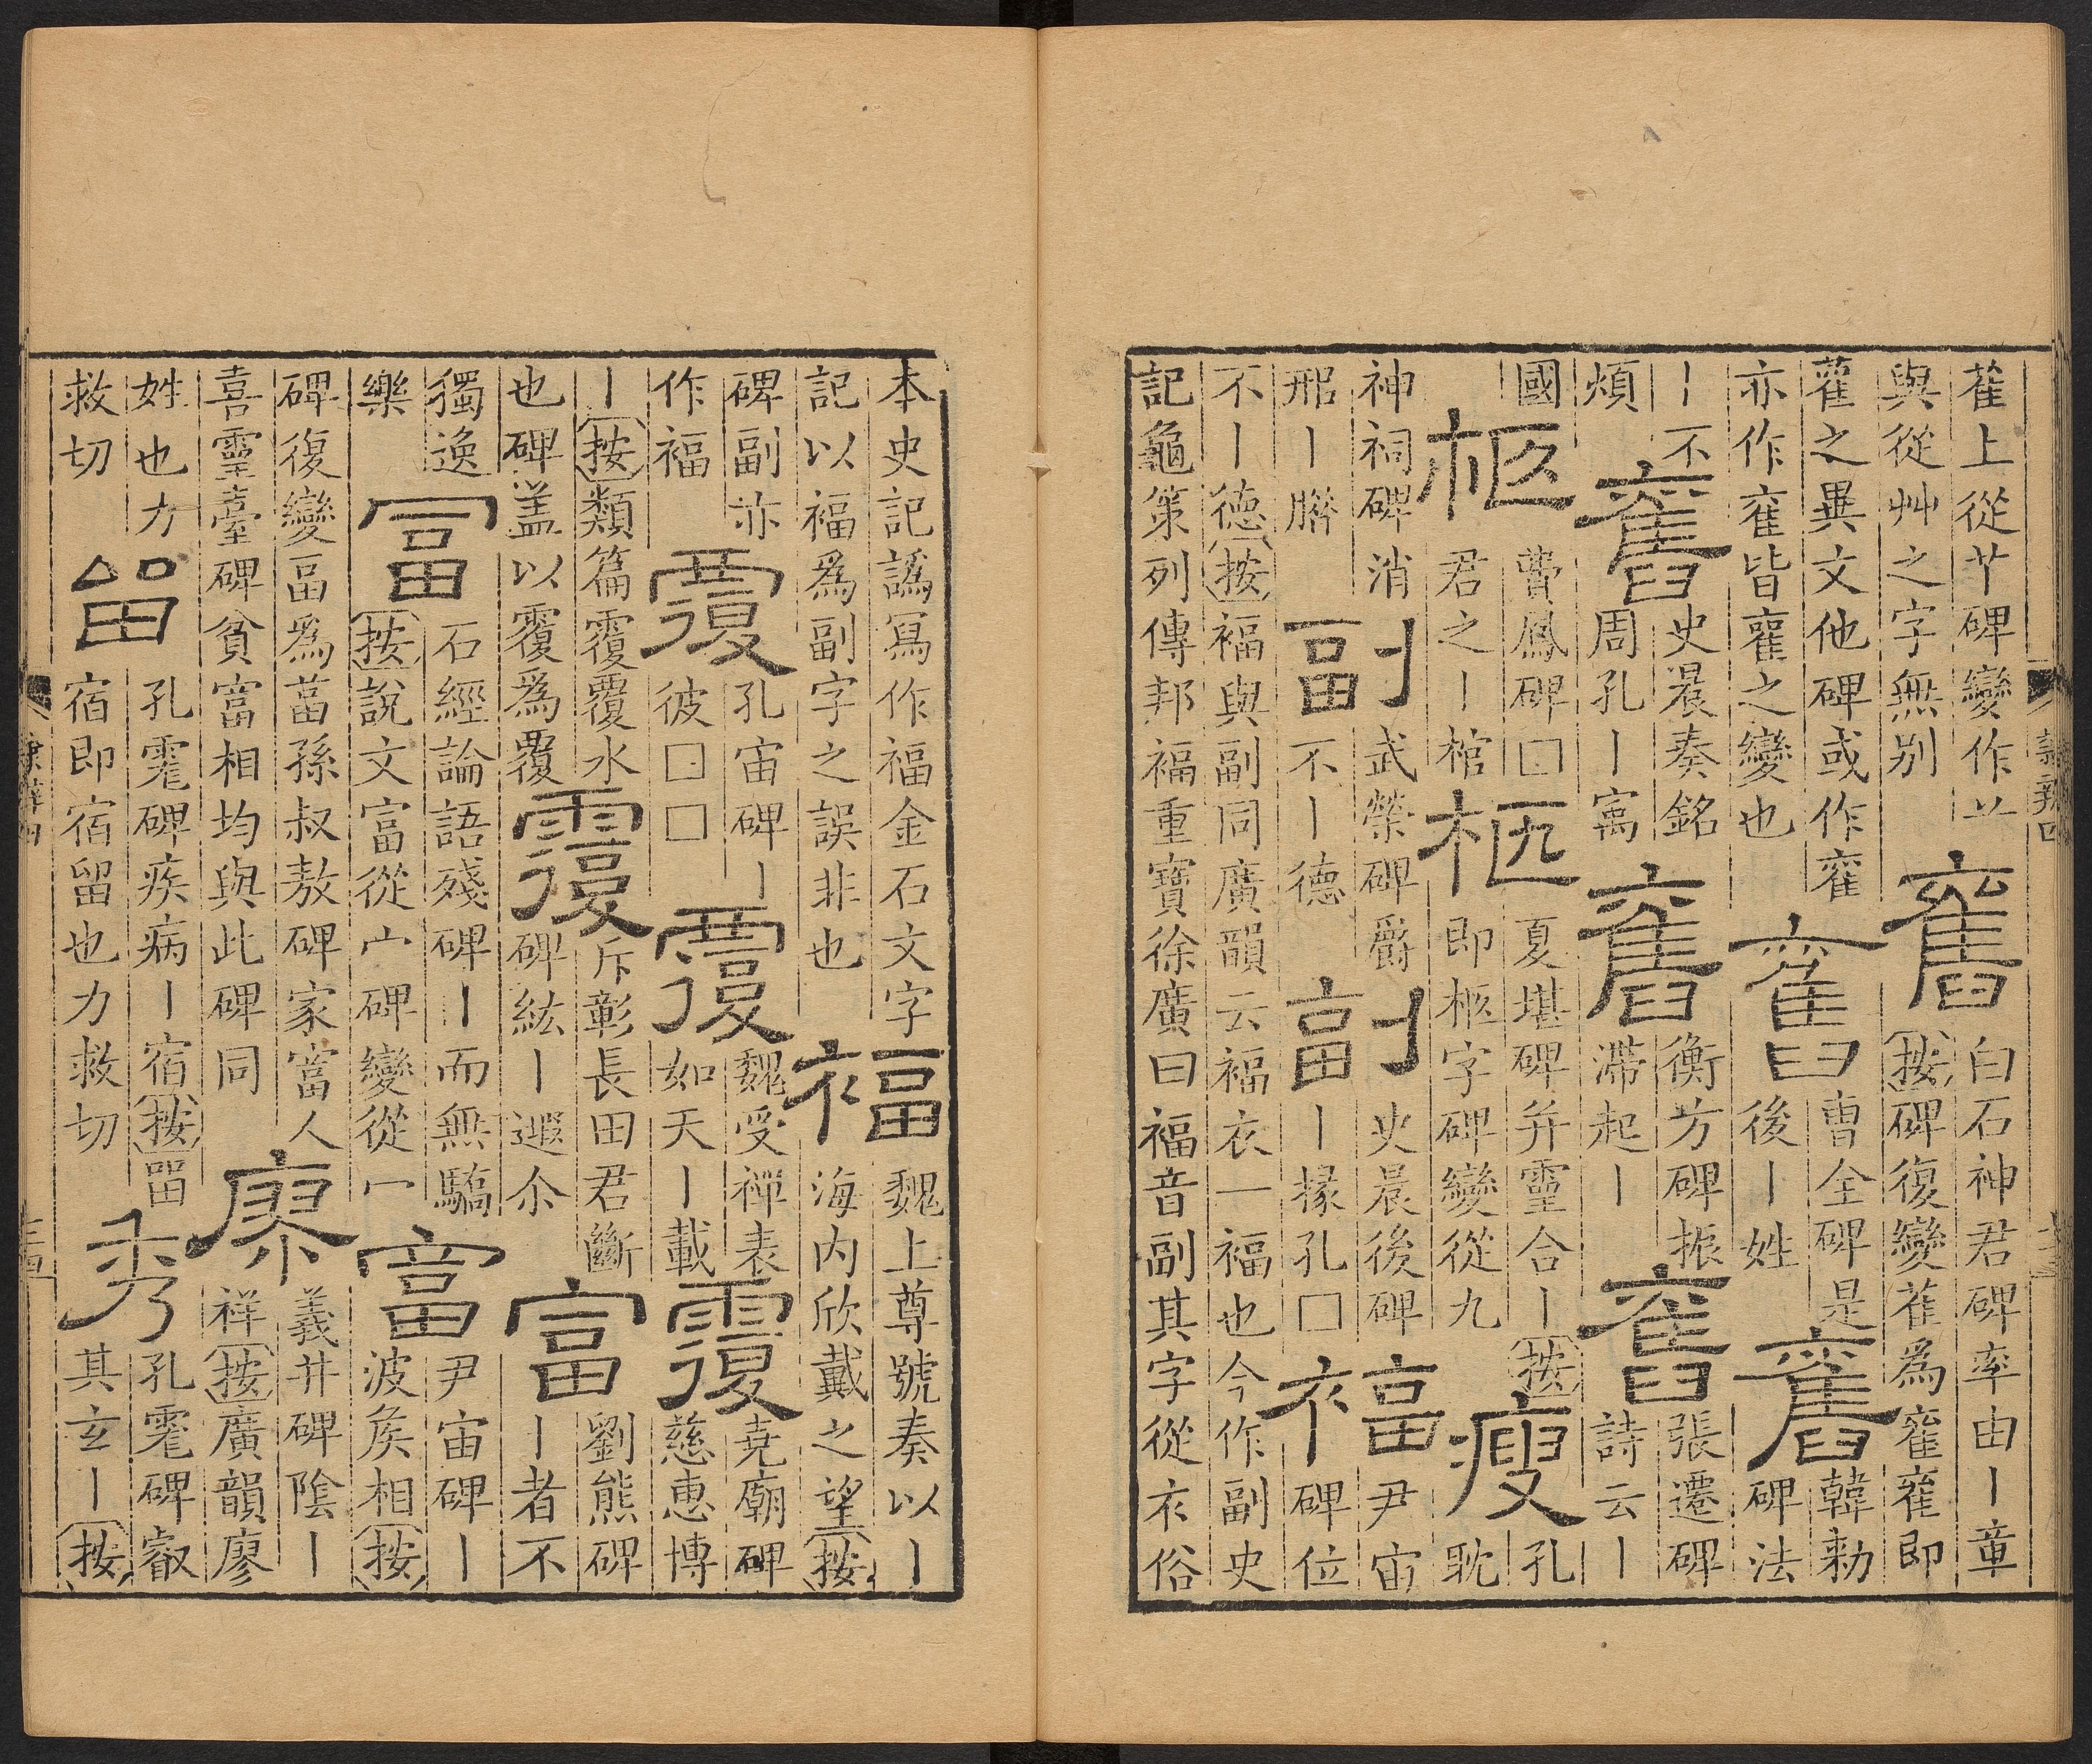 雈上從䒑碑變作䒑
與從艸之字無别
舊
白石神君碑率由｜章
按碑復變雈為雚雚即
雚之異文他碑或作雚
亦作雚皆雚之變也
舊
曹全碑是
後｜姓
舊
韓勑
碑法
｜不
煩
舊
史晨奏銘
周孔｜寓
舊
衡方碑振
滯起｜
舊
張遷碑
詩云｜
國
柩
費鳳碑□
君之｜棺
柩
夏堪碑并靈合｜按
即柩字碑變從九
瘦
孔
耽
神祠碑消
形｜臞
副
武榮碑爵
不｜德
副
史晨後碑
｜掾孔□
褔
尹宙
碑位
不｜德按褔與副同廣韻云褔衣一褔也今作副史
記龜策列傳邦褔重寶徐廣曰褔音副其字從衣俗
本史記譌寫作福金石文字
記以褔為副字之誤非也
褔
魏上尊號奏以｜
海内欣戴之望按
碑副亦
作褔
覆
孔宙碑｜
彼□□
覆
魏受禪表
如天｜載
覆
堯廟碑
慈惠博
｜按類篇覆覆水
也碑蓋以覆為覆
覆
斥彰長田君斷
碑紘｜遐尒
富
劉熊碑
｜者不
獨逸
樂
冨
石經論語殘碑｜而無驕
按說文富從宀碑變從冖
富
尹宙碑｜
波矦相按
碑復變畐為葍孫叔敖碑家富人
喜靈臺碑貧富相均與此碑同
廖
義井碑陰｜
祥按廣韻廖
姓也力
救切
畱
孔碑疾病｜宿按畱
宿即宿留也力救切
秀
孔碑叡
其玄｜按
隸辨四